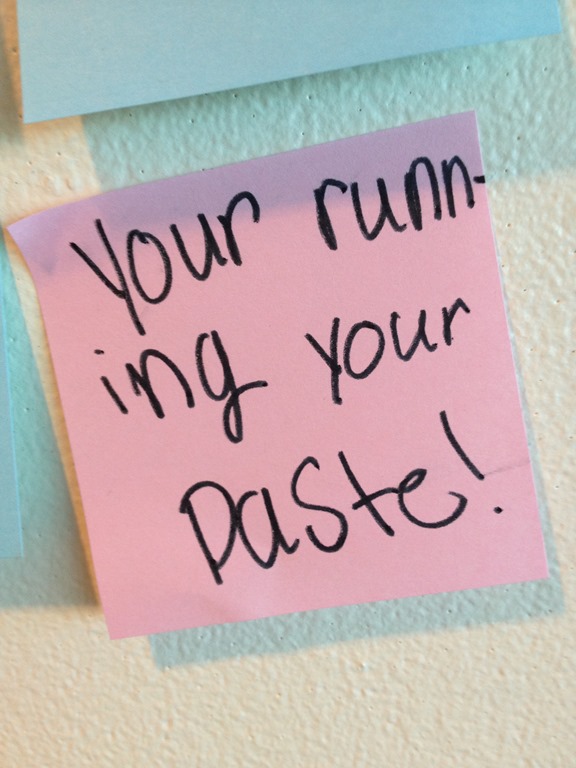 Your runn-
ing your
paste!